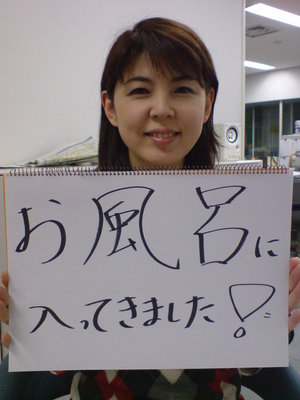 お風呂に
入ってきました!